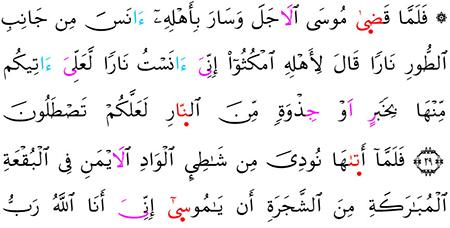 ۞ فَلَمَّا قَضَىٰ مُوسَى ٱلَاجَلَ وَسَارَ بِأَهْلِهِۦٓ ءَانَسَ مِن جَانِبِ
ٱلطُّورِ نَارٗا قَالَ لِأَهْلِهِ ٱمْكُثُوٓاْ إِنِّيَ ءَانَسْتُ نَارٗا لَّعَلِّيَ ءَاتِيكُم
مِّنْهَا بِخَبَرٍ اَوْ جِذْوَةٖ مِّنَ ٱلنّ۪ارِ لَعَلَّكُمْ تَصْطَلُونَ
﴿٢٩﴾ فَلَمَّآ أَتَىٰهَا نُودِيَ مِن شَٰطِيِٕ ٱلْوَادِ ٱلَايْمَنِ فِي ٱلْبُقْعَةِ
ٱلْمُبَٰرَكَةِ مِنَ ٱلشَّجَرَةِ أَن يَٰمُوسَىٰٓ إِنِّيَ أَنَا ٱللَّهُ رَبُّ